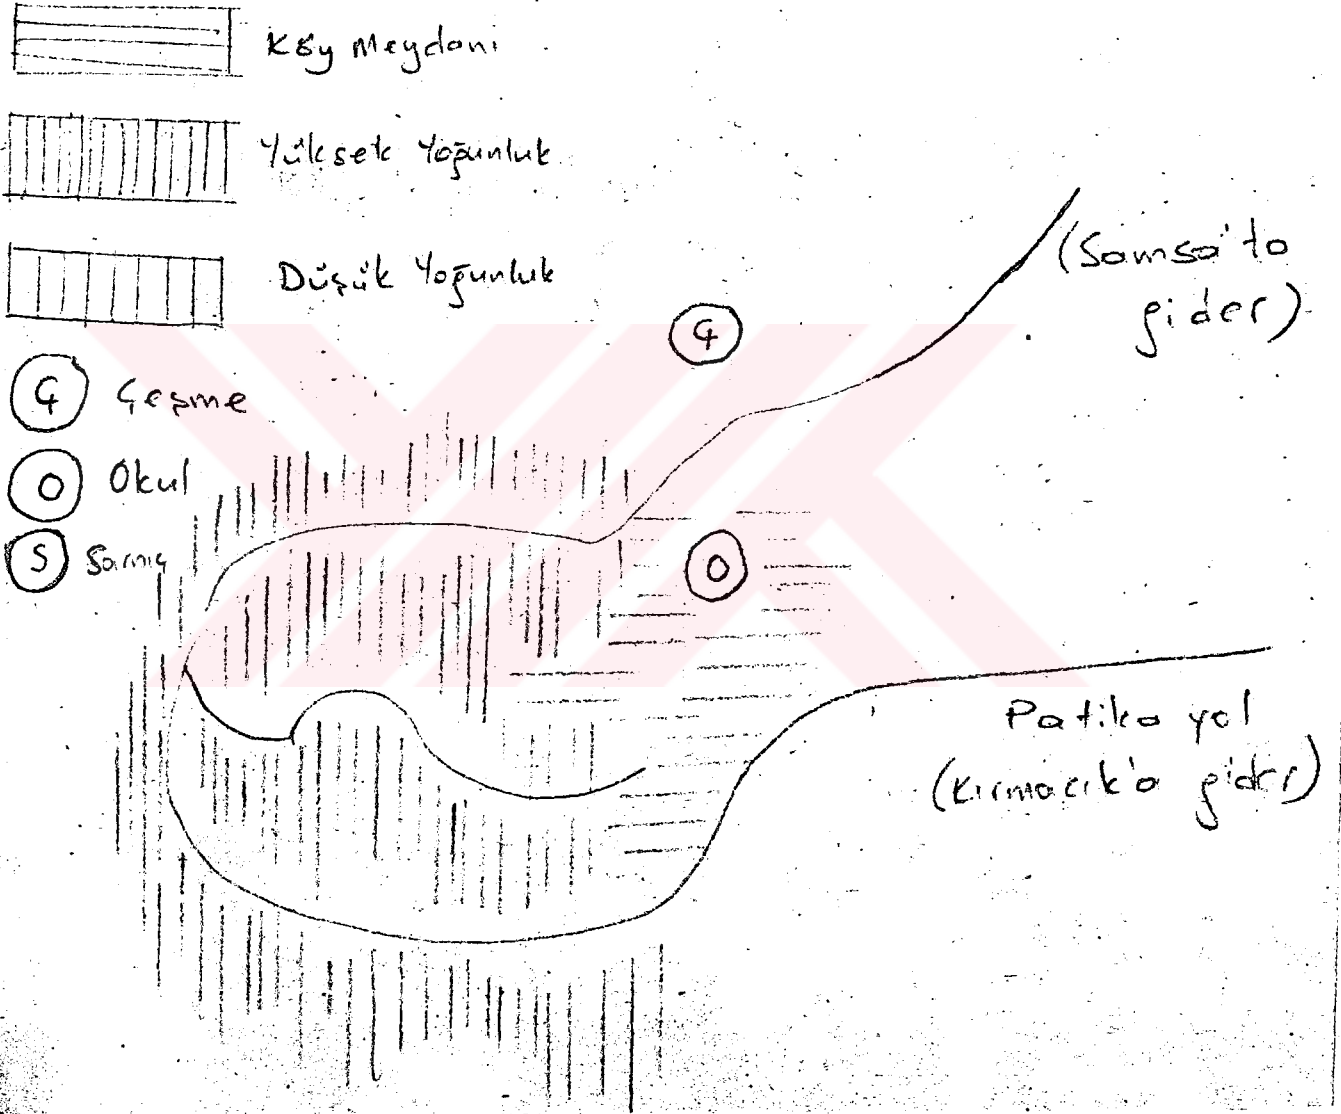 Köy Meydanı
Yüksek Yoğunluk
Düşük Yoğunluk
Ç Çeşme
O Okul
S Sarnıç
Ç
(Samsa'ta
gider)
O
Patika yol
(Kırmacık'a gider)